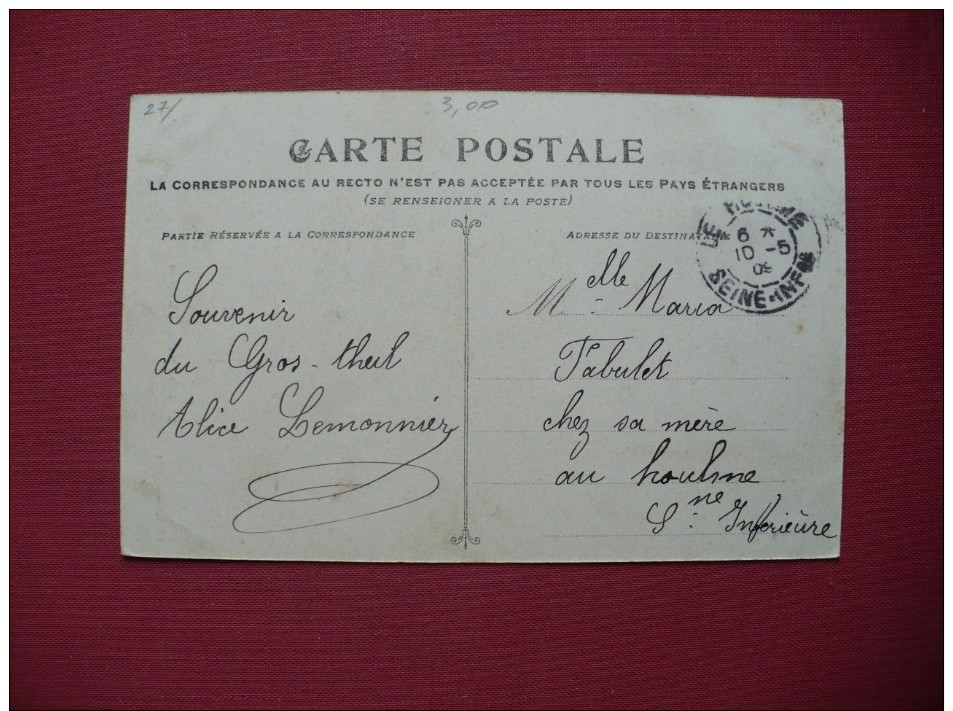 27/
3,00
CARTE POSTALE
LA CORRESPONDANCE AU RECTO N'EST PAS ACCEPTÉE PAR TOUS LES PAYS ÉTRANGERS
(SE RENSEIGNER A LA POSTE)
PARTIE RÉSERVÉE A LA CORRESPONDANCE
Souvenir
du Gros-theil
Alice Lemonnier
ADRESSE DU DESTINATAIRE
Melle Maria
Tabulet
chez sa mère
au houlme
Sne Inferieùre
LE HOULME
6 *
10 - 5
09
SEINE-INFRE